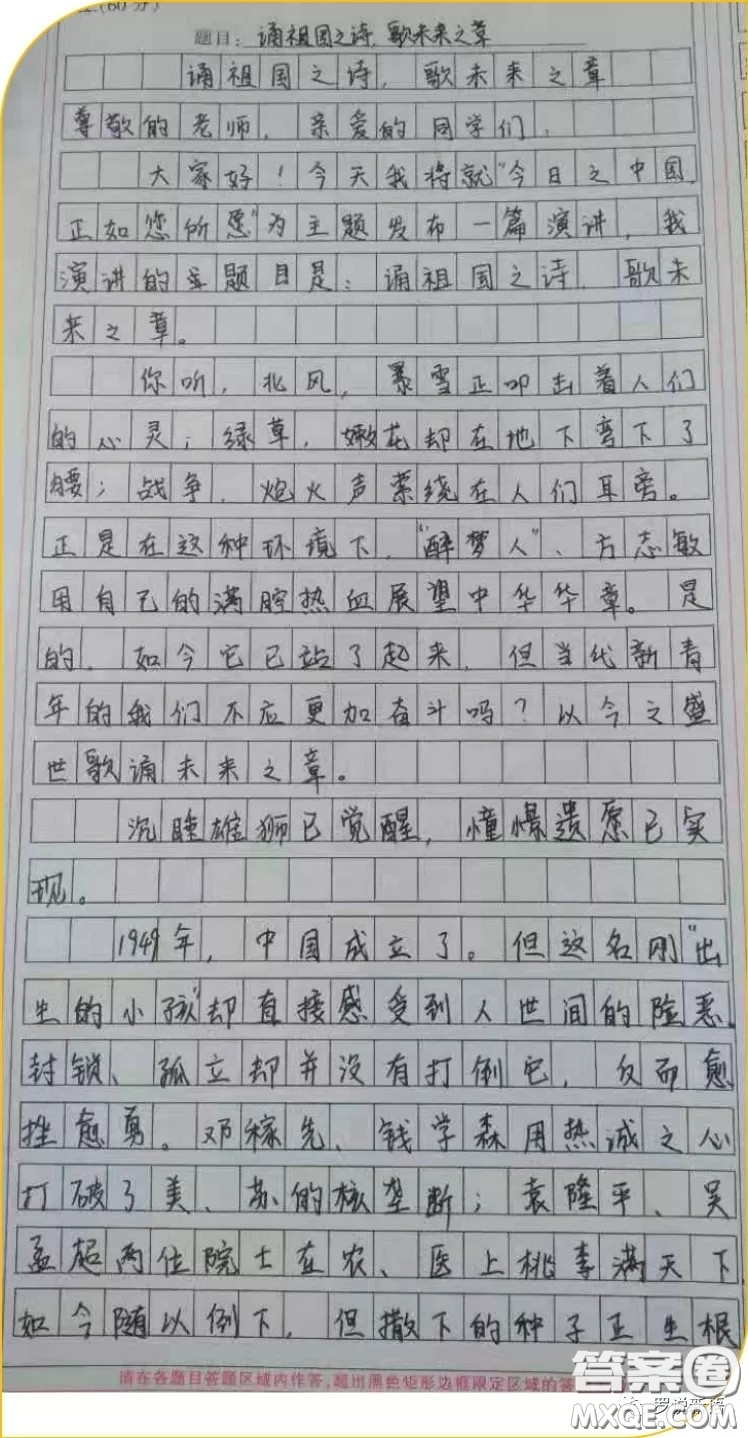 (60分)
题目：诵祖国之诗，歌未来之章
诵祖国之诗，歌未来之章
尊敬的老师，亲爱的同学们：
大家好！今天我将就"今日之中国，
正如您所愿"为主题发布一篇演讲，我
演讲的主题目是：诵祖国之诗，歌未
来之章。
你听，北风，暴雪正叩击着人们
的心灵；绿草，嫩花却在地下弯下了
腰；战争、炮火声萦绕在人们耳旁。
正是在这种环境下，"醉梦人"、方志敏
用自己的满腔热血展望中华华章。是
的，如今它已站了起来，但当代新青
年的我们不应更加奋斗吗？以今之盛
世歌诵未来之章。
沉睡雄狮已觉醒，憧憬遗愿已实
现。
1949年，中国成立了。但这名刚"出
生的小孩"却直接感受到人世间的险恶。
封锁、孤立却并没有打倒它，反而愈
挫愈勇。邓稼先、钱学森用热诚之心
打破了美、苏的核垄断；袁隆平、吴
孟超两位院士在农、医上桃李满天下，
如今随以倒下，但撒下的种子正生根
请在各题目答题区域内作答，超出黑色矩形边框限定区域的答
答案圈
MXQE.COM